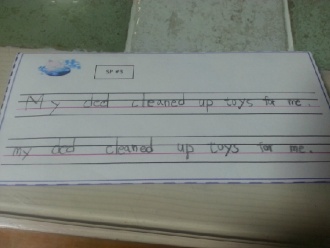 SP #3
My dad cleaned up toys for me.
my dad cleaned up toys for me.